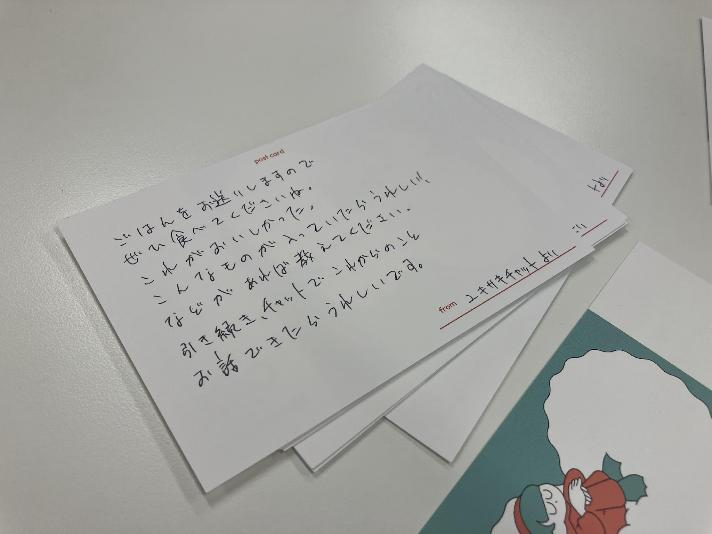 post card
ごはんをお送りしますので
ぜひ食べてくださいね。
これがおいしかった。
こんなものが入っていたらうれしい、
などがあれば教えてください。
引き続き、チャットでこれからのこと
お話できたらうれしいです。
from ユキサキチャットより